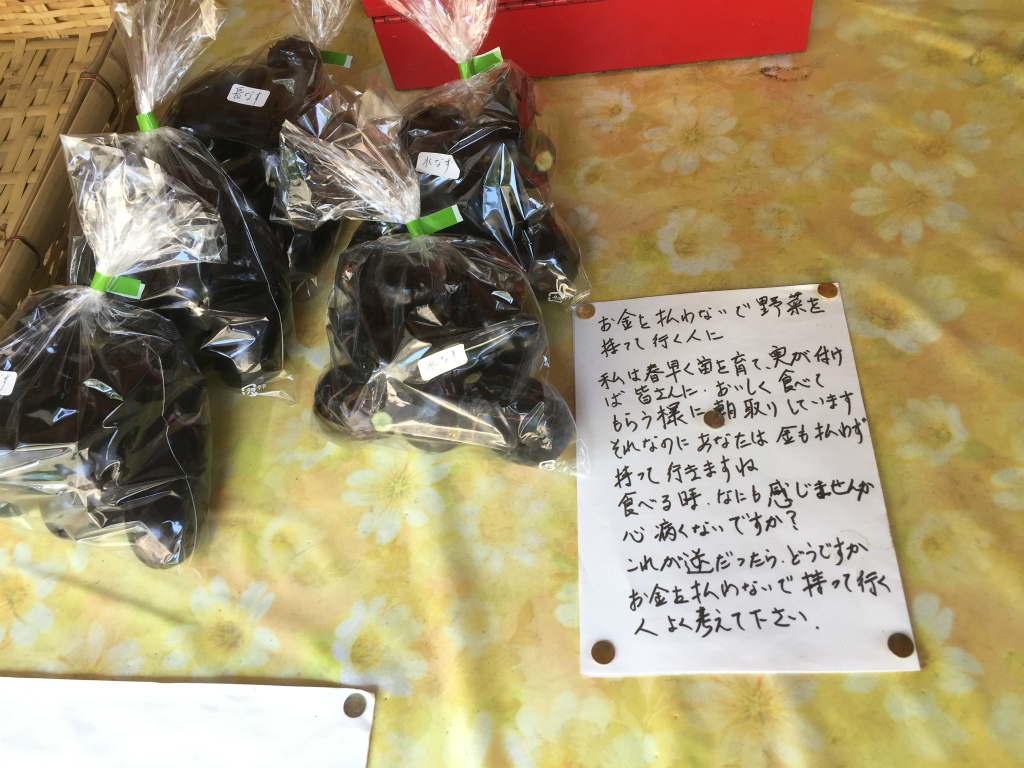 長なす
水なす
水なす
なす
お金を払わないで野菜を
持て行く人に
私は春早く苗を育て、実が付け
ば皆さんに、おいしく食べて
もらう様に朝取りしています
それなのにあなたは金も払わず
持って行きますね
食べる時、なにも感じませんか
心病くないですか?
これが逆だったら、どうですか
お金を払わないで持って行く
人よく考えて下さい.